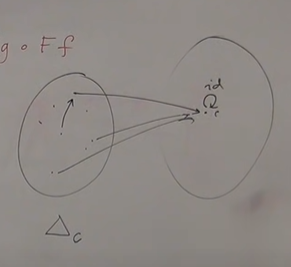 g ∘ Ff
id
c
Δc